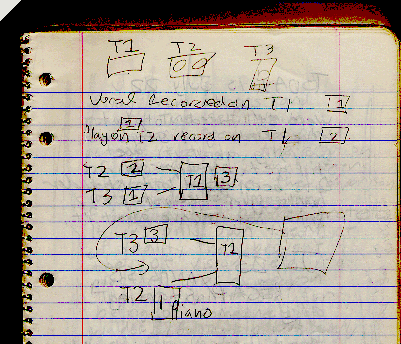 T1 T2 T3
Vocal Recorded on T1 1
Play 1 on T2 record on T1 2
T2 2 T1 3
T3 1
T3 3 T1
T2 1 Piano